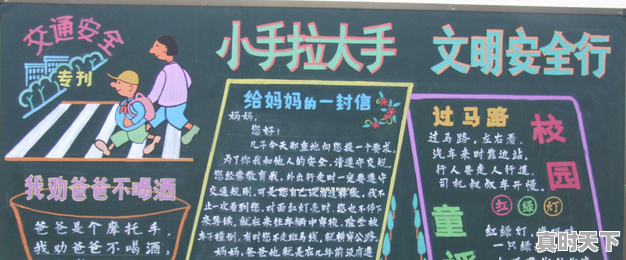 交通安全
专刊
小手拉大手 文明安全行
我劝爸爸不喝酒
爸爸是个摩托手,
我劝爸爸不喝酒
给妈妈的一封信
妈妈,
您好!
儿子今天郑重地向您提一个要求,
为了你我和他人的安全,请遵守交规。
您经常教育我,外出行走时一定要遵守
交通规则,可是您自己
不止一次看到您,对面红灯亮时,您也不停下
来等候,就在来往车辆中穿梭,险些被
车子撞倒,有时您不走斑马线,就横穿公路。
妈妈,爸爸他就是在几年前没有遵
过马路
过马路,左右看,
汽车来时靠边站,
行人要走人行道,
司机叔叔车开慢。
红绿灯
红绿灯,
一只绿
校园
童谣
真时天下